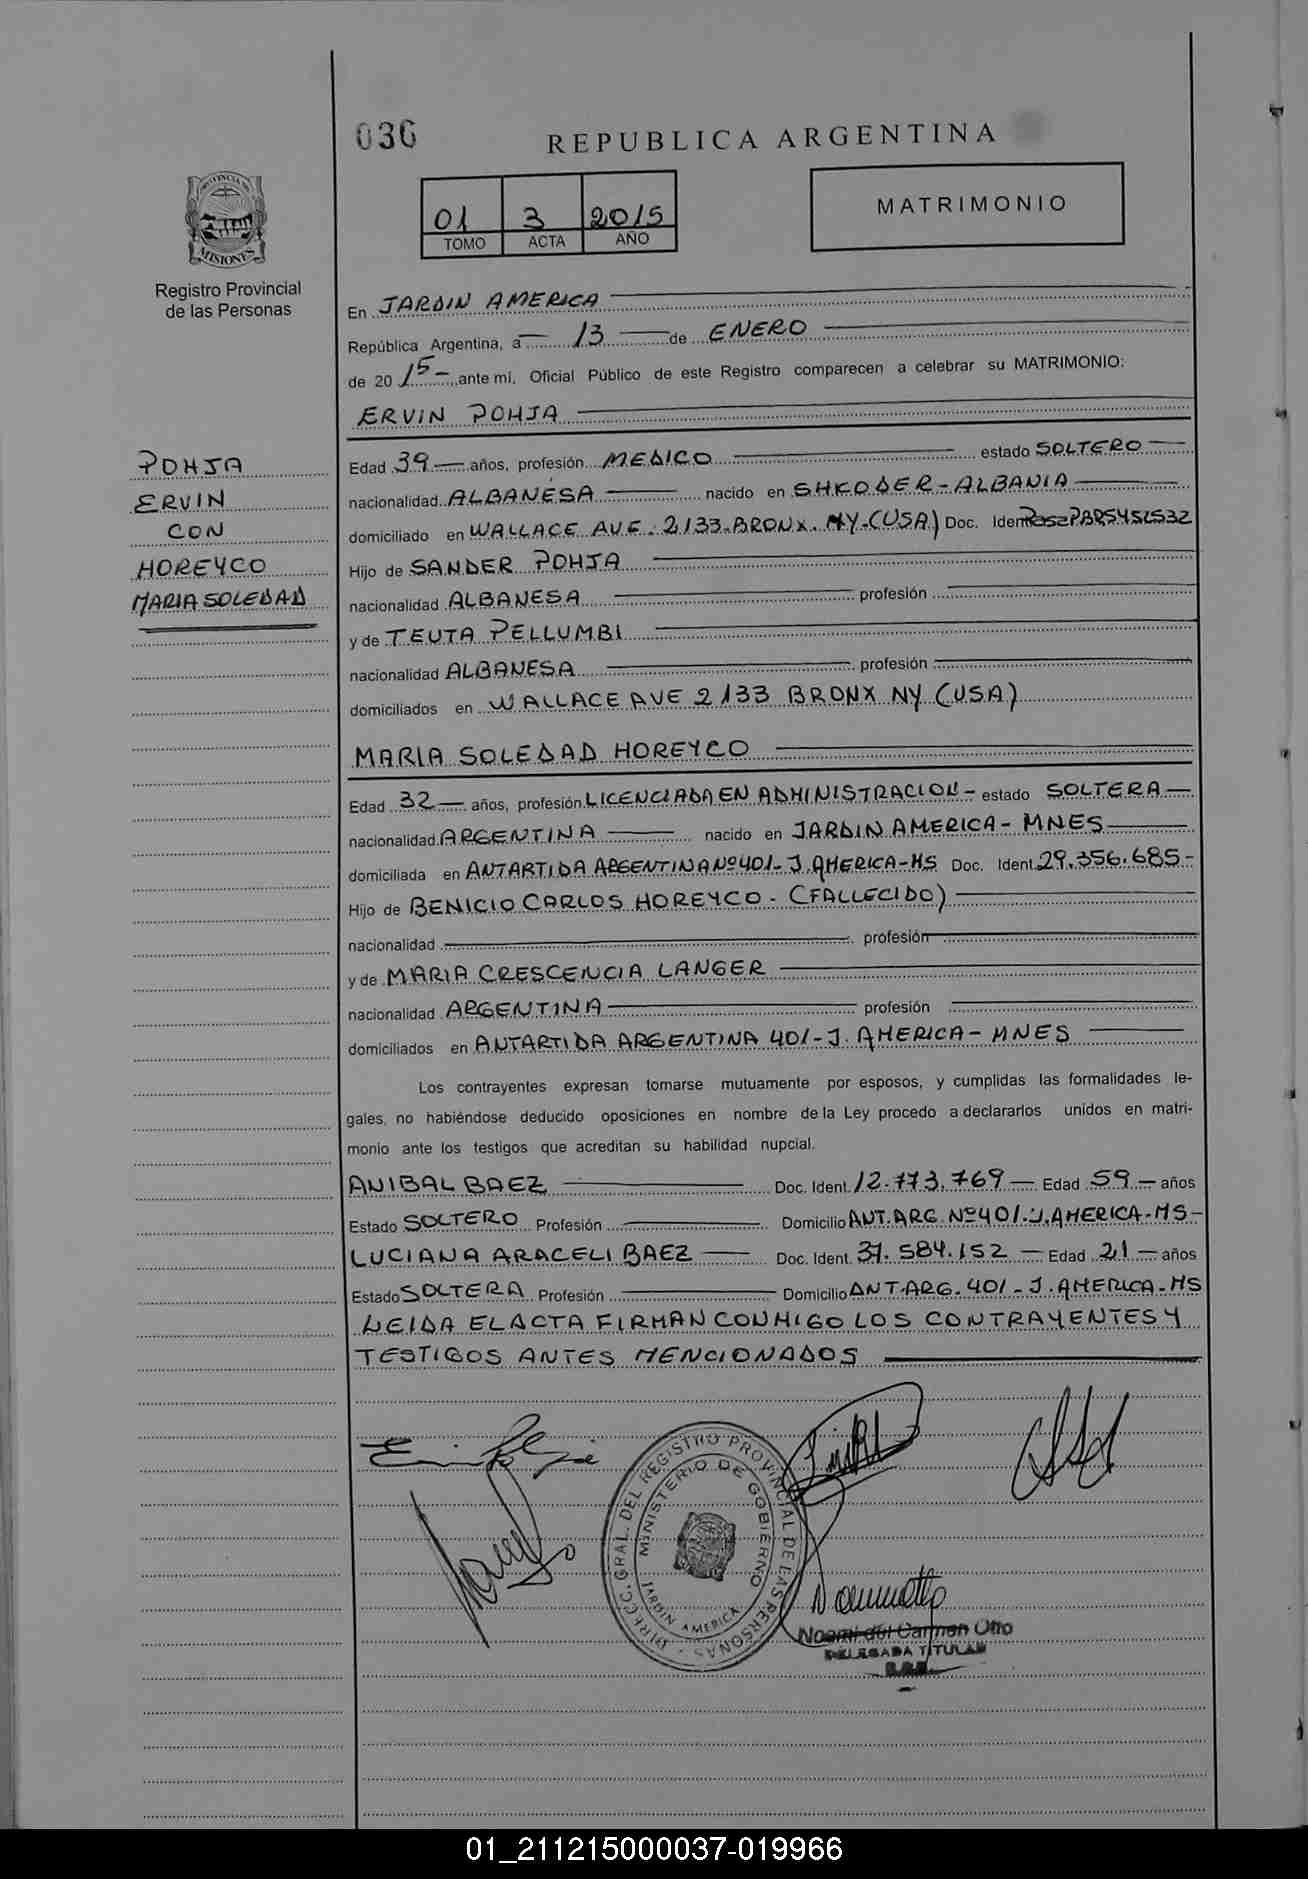 036
REPUBLICA ARGENTINA
01 3 2015
TOMO ACTA AÑO
MATRIMONIO
PROVINCIA DE
MISIONES
Registro Provincial
de las Personas
POHJA
ERVIN
CON
HOREYCO
MARIA SOLEDAD
En JARDIN AMERICA
República Argentina, a 13 de ENERO
de 20 15 - ante mí, Oficial Público de este Registro comparecen a celebrar su MATRIMONIO:
ERVIN POHJA
Edad 39 años, profesión MEDICO estado SOLTERO
nacionalidad ALBANESA nacido en SHKODER - ALBANIA
domiciliado en WALLACE AVE. 2133. BRONX. NY. (USA) Doc. Ident
Hijo de SANDER POHJA
nacionalidad ALBANESA profesión
y de TEUTA PELLUMBI
nacionalidad ALBANESA profesión
domiciliados en WALLACE AVE 2133 BRONX NY (USA)
MARIA SOLEDAD HOREYCO
Edad 32 años, profesión LICENCIADA EN ADMINISTRACION - estado SOLTERA
nacionalidad ARGENTINA nacido en JARDIN AMERICA - MNES
domiciliada en ANTARTIDA ARGENTINA Nº 401 - J. AMERICA - MS Doc. Ident. 29.356.685 -
Hijo de BENICIO CARLOS HOREYCO - (FALLECIDO)
nacionalidad profesión
y de MARIA CRESCENCIA LANGER
nacionalidad ARGENTINA profesión
domiciliados en ANTARTIDA ARGENTINA 401 - J. AMERICA - MNES
Los contrayentes expresan tomarse mutuamente por esposos, y cumplidas las formalidades le-
gales, no habiéndose deducido oposiciones en nombre de la Ley procedo a declararlos unidos en matri-
monio ante los testigos que acreditan su habilidad nupcial.
ANIBAL BAEZ Doc. Ident. 12.773.769 Edad 59 años
Estado SOLTERO Profesión Domicilio ANT. ARG. Nº 401. J. AMERICA - MS -
LUCIANA ARACELI BAEZ Doc. Ident. 37.584.152 Edad 21 años
Estado SOLTERA Profesión Domicilio ANT. ARG. 401 - J. AMERICA - MS
LEIDA EL ACTA FIRMAN CONMIGO LOS CONTRAYENTES Y
TESTIGOS ANTES MENCIONADOS
DIRECC. GRAL. DEL REGISTRO PROVINCIAL DE LAS PERSONAS
MINISTERIO DE GOBIERNO
JARDIN AMERICA
Noemi del Carmen Otto
DELEGADA TITULAR
01_211215000037-019966